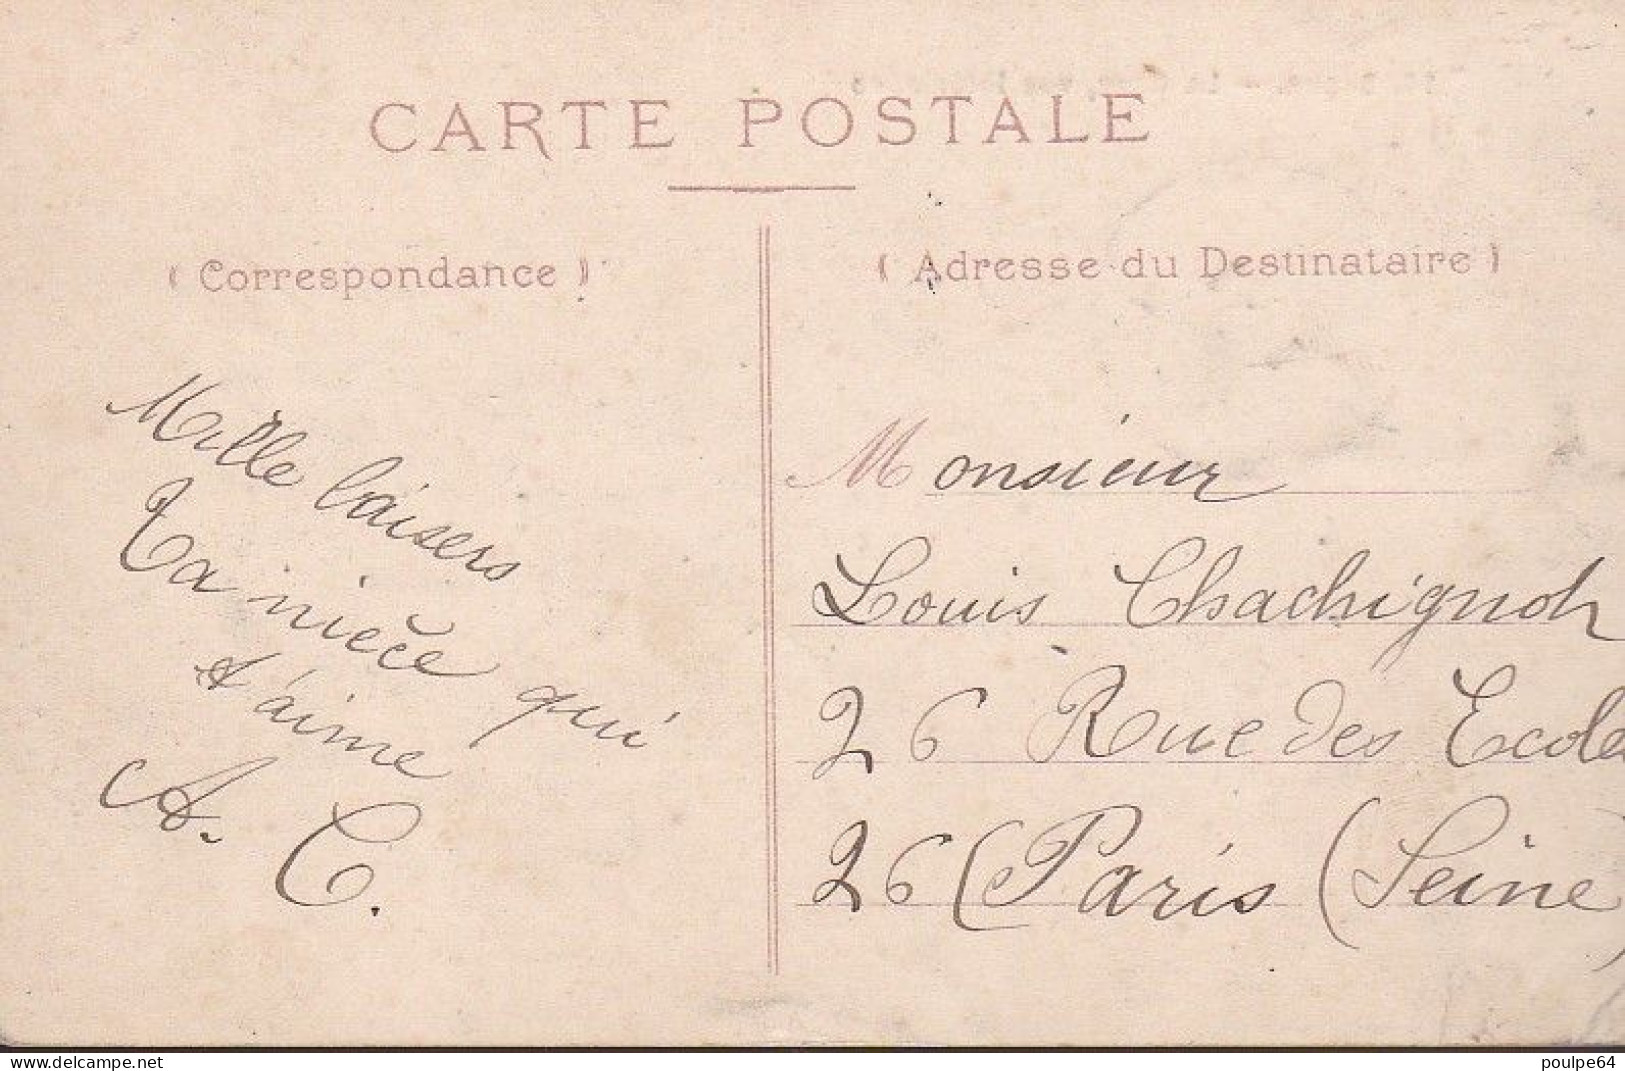 CARTE POSTALE
( Correspondance )
( Adresse du Destinataire )
Mille baisers
Ta nièce qui
t'aime
A. C.
Monsieur
Louis Chachignon
26 Rue des Ecoles
26 (Paris (Seine)
www.delcampe.net
poulpe64